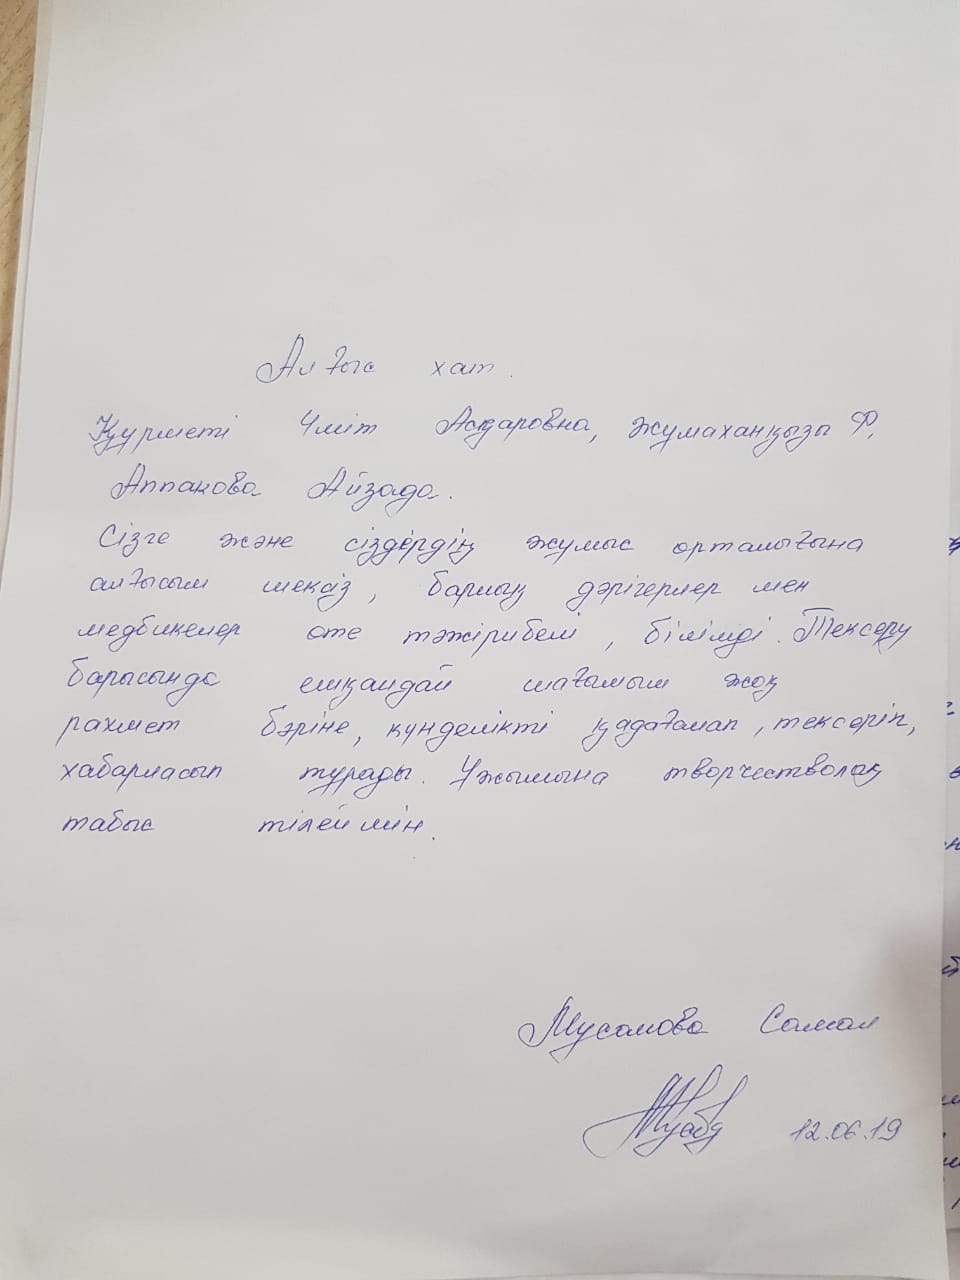 Алғыс хат.
Құрметі Үміт Асқаровна, Жумаханқызы Ф,
Аппакова Айзада.
Сізге және сіздердің жұмыс орталығына
алғысым шексіз, барлық дәрігерлер мен
медбикелер өте тәжірибелі, білімді. Тексеру
барысында ешқандай шағымым жоқ
рахмет бәріне, күнделікті қадағалап, тексеріп,
хабарласып турады. Ұжымына творчестволық
табыс тілеймін.
Мусанова Самал
12.06.19